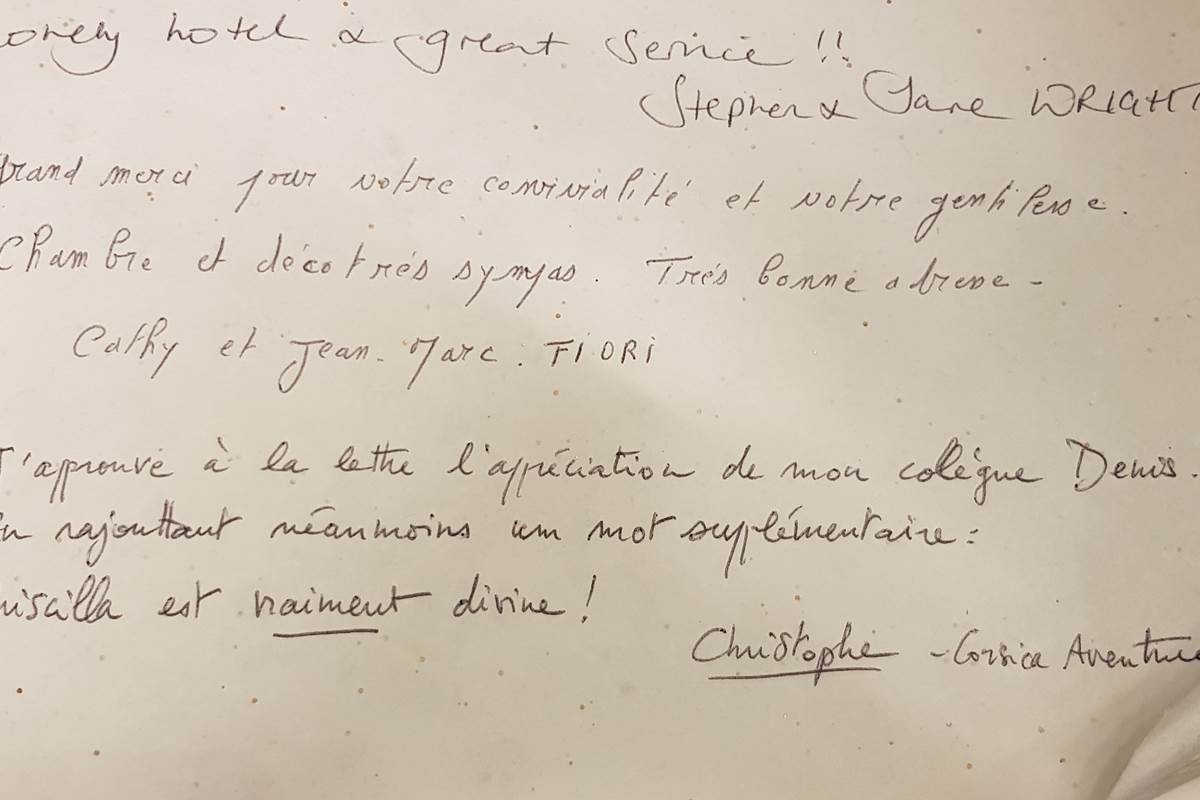 Lovely hotel & great service !!
Stephen & Jane WRIGHT
Grand merci pour votre convivialité et votre gentillesse.
Chambre et déco trés sympas. Trés bonne adresse -
Cathy et Jean-Marc. FIORI
J'approuve à la lettre l'appréciation de mon colègue Denis.
En rajouttant néanmoins um mot suplémentaire :
Priscilla est vraiment divine !
Christophe - Corsica Aventure